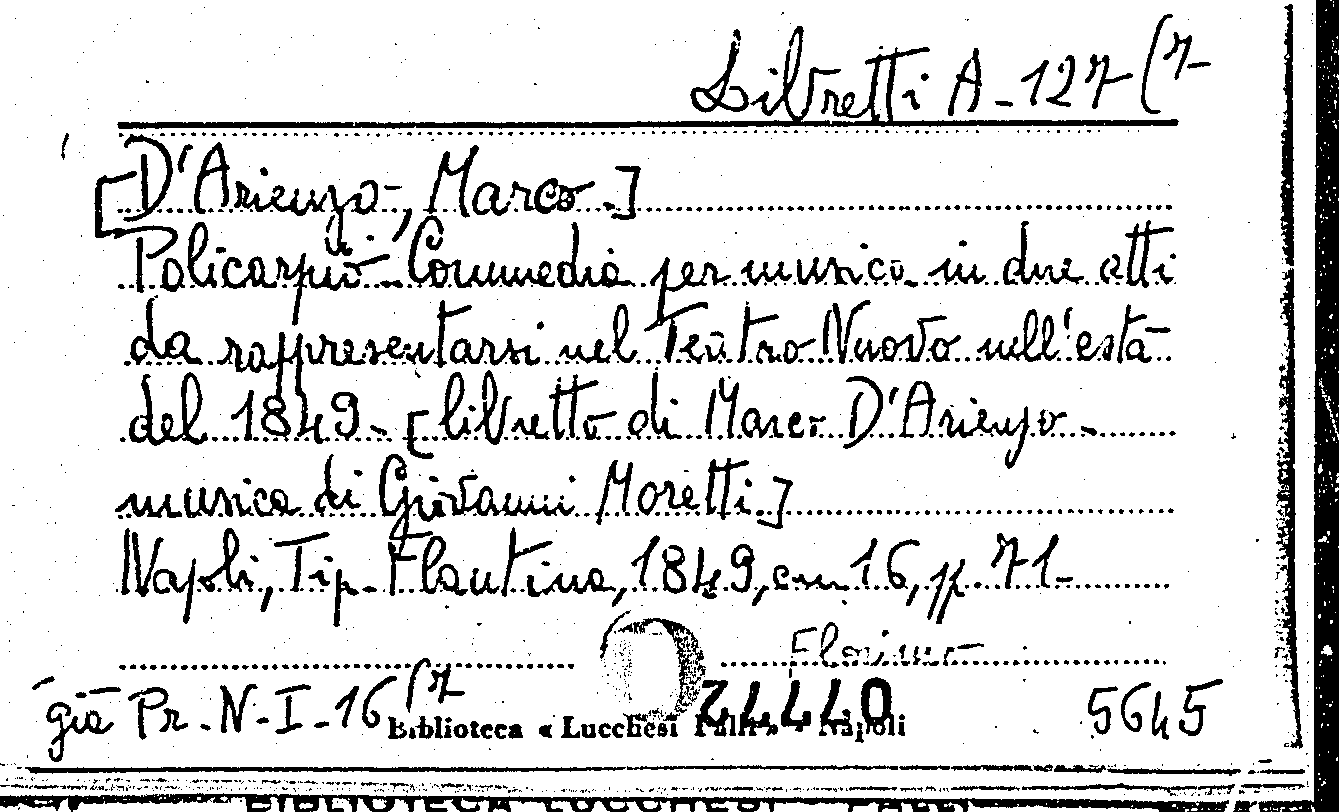 Libretti A-127(7
[D'Arienzo, Marco.]
Policarpio - Commedia per musica in due atti
da rappresentarsi nel Teatro Nuovo nell'está
del 1849 - [libretto di Marco D'Arienzo -
musica di Giovanni Moretti.]
Napoli, Tip. Flautina, 1849, cm 16, pp. 71-
Florimo
già Pr. N-I-16(7
Biblioteca « Lucchesi Palli » - Napoli
5645
BIBLIOTECA LUCCHESI PALLI